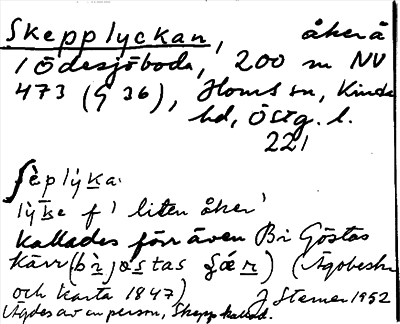 Skepplyckan, åker å
/ Ödesjöboda, 200 m NV
473 (G 36), Horns sn, Kinda
hd, Östg. l.
221
ʃèplỳka.
lỳke f 'liten åker'
Kallades förr även Bi Göstas
Kärr (bì jøstas ɕǽr) (Ägobeskr
och karta 1847) J Sterner 1952
Ägdes av en person, Skepp kallad.